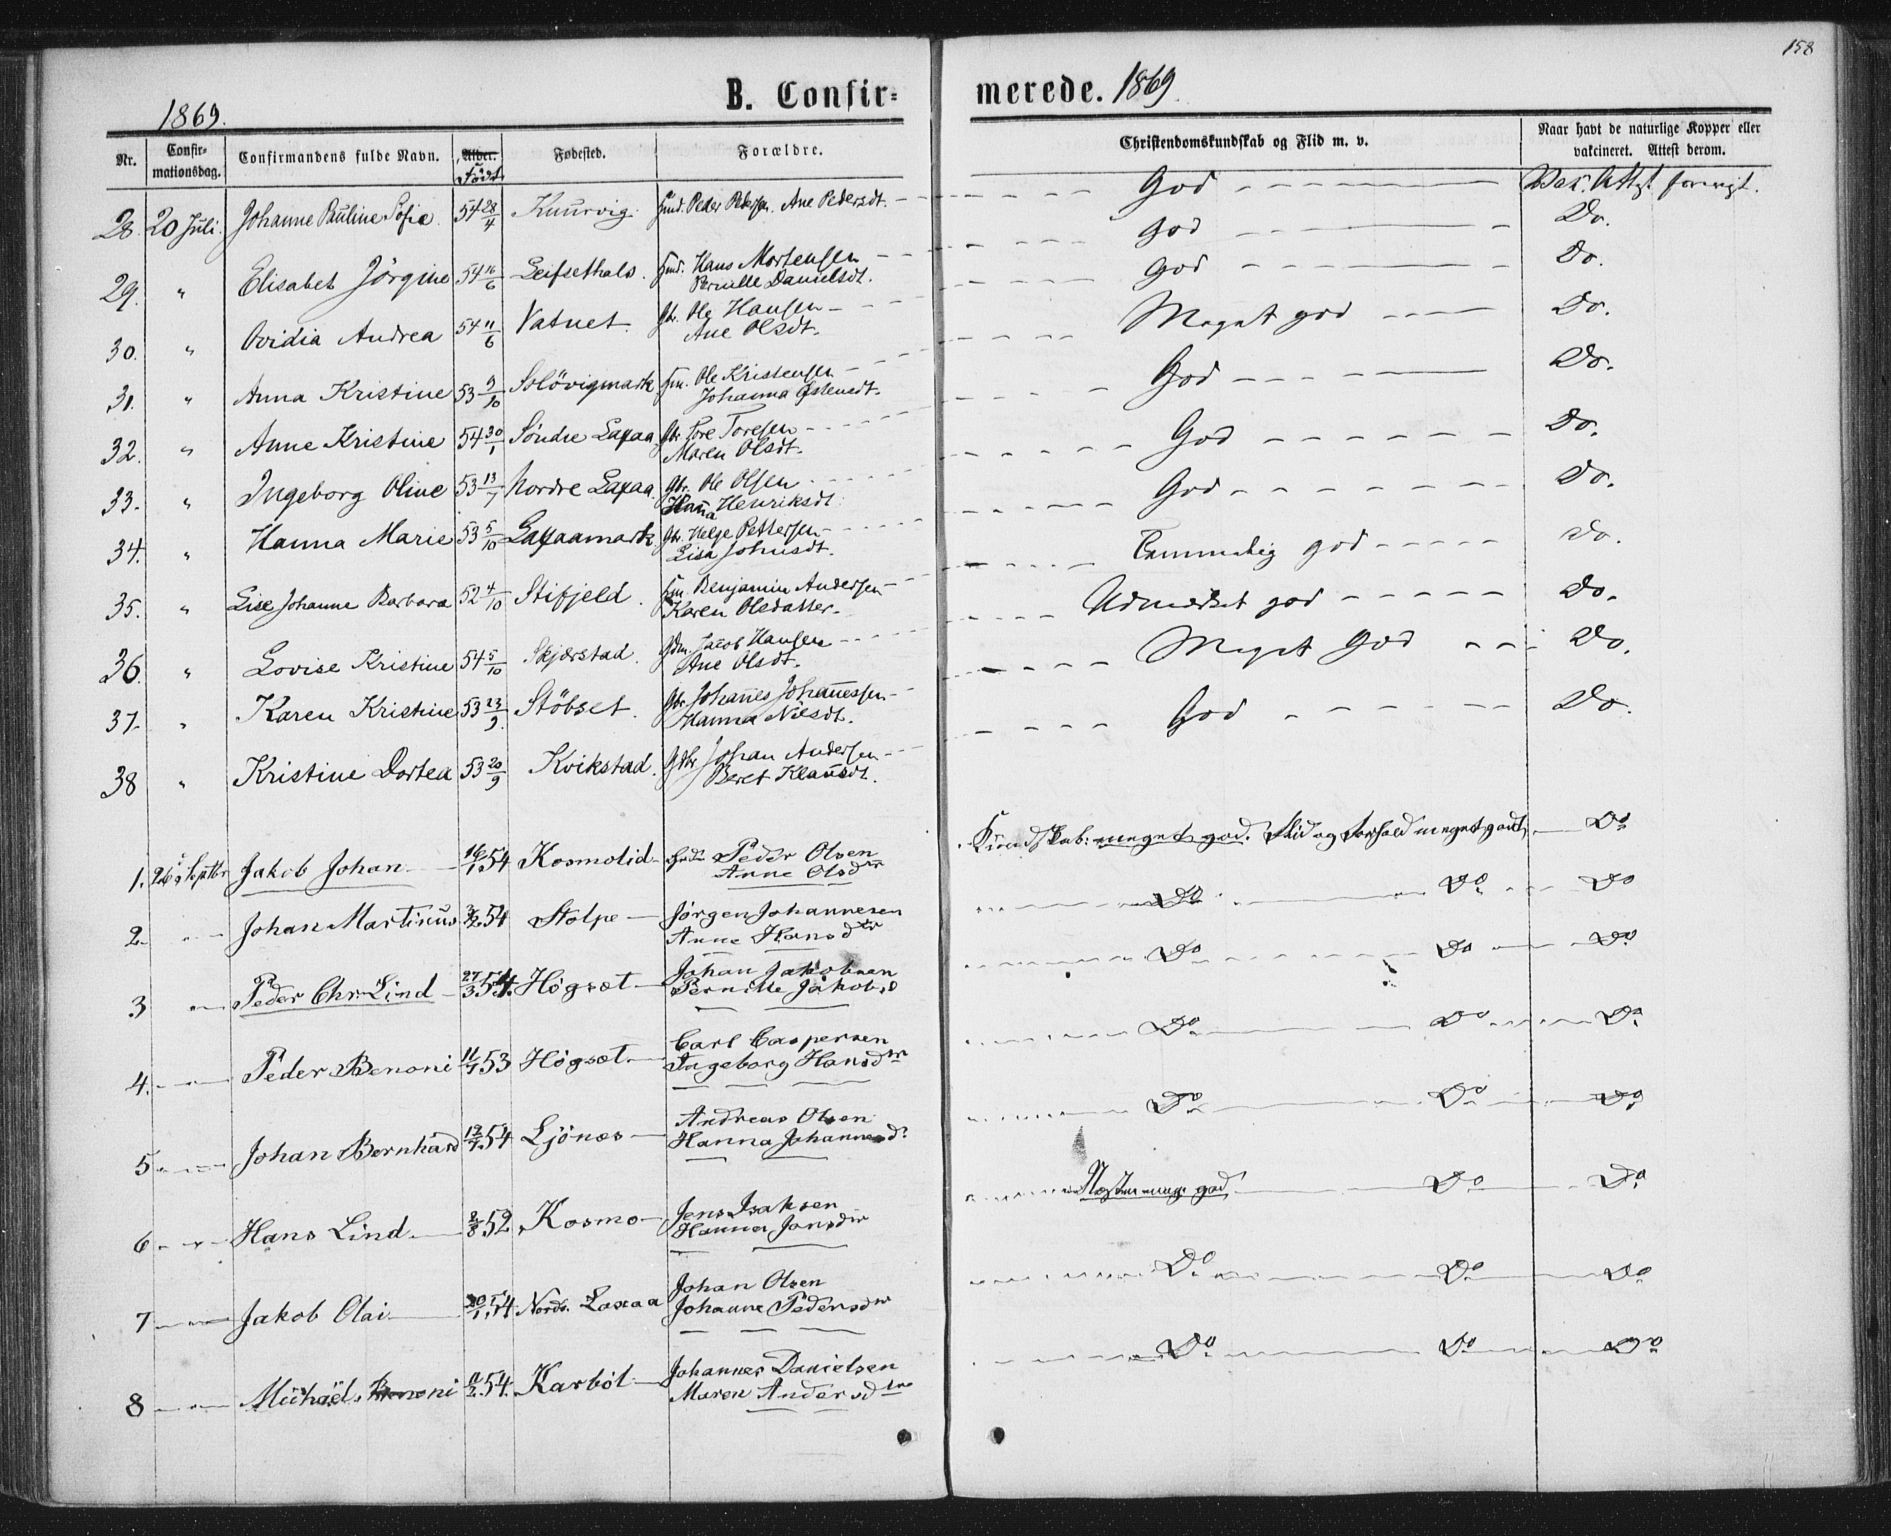 158
1869.
B. Confir=
merede. 1869
Nr.
Confir-
mationsdag.
Confirmandens fulde Navn.
Alder.
Född
Fødested.
Forældre.
Christendomskundskab og Flid m. v.
Naar havt de naturlige Kopper eller
vakcineret. Attest derom.
28. 20 Juli. Johanne Pauline Sofie. 54 28/4 Knurvig. Hmd. Peder Pedersen. Ane Pedersdt. God
29. " Elisabet Jörgine 54 16/6 Leifsethals Hmd. Hans Mortensen God Do.
Pernille Danielsdt.
30. " Ovidia Andrea 54 11/6 Vatnet. Gbr. Ole Hansen God Do.
Ane Olsdt.
31. " Anna Kristine 53 9/10 Solövigmark Hm. Ole Kristensen Meget god Do.
Johanna
32. " Anne Kristine 54 30/1 Söndre Laxaa Gbr. Tore Toresen God Do.
Maren Olsdt.
33. " Ingeborg Oline 53 13/7 Nordre Laxaa Gbr. Ole Olsen God Do.
Hanna Henriksdt.
34. " Hanna Marie 53 5/10 Laxaamark Gbr. Helge Pettersen God Do.
Lisa Johnsdt.
35. " Lise Johanne Barbara 52 4/10 Stifjeld. Hm. Benjamin Andersen Temmelig god Do.
Karen Olsdatter.
36. " Lovise Kristine 54 5/10 Skjærstad. Jacob Hansen Udmærket god Do.
Ane Olsdt.
37. " Karen Kristine 53 23/9. Stöbset. Gbr. Johanes Johanessen Meget God Do.
Hanna Nilsdt.
38 " Kristine Dortea 53 20/9 Kvikstad. Gbr. Johan Andersen God Do.
Beret Klausdt.
1. 26 Septbr Jakob Johan 16/1 54 Kosmolid Peder Olsen Kundskab: meget god. Flid og Forhold meget godt. Do
Anne Olsdtr
2. Johan Martinus 54 Stolpe Jørgen Johannesen Do Do Do
Anne Hansdtr
3 Peder Chr. Lind 27/3 54. Høgsæt Johan Jakobsen Do Do Do
Pernille Jakobsd
4. Peder Benoni 11/7 53 Høgsæt Carl Caspersen Do Do Do
Ingeborg Hansdtr
5 Johan Bernhard 54 Ljönes Andreas Olsen Do Do Do
Hanna Johannesd.
6 Hans Lind 2/8 52 Kosmo Jens Isaksen Næsten meg. god Do Do
Hanna Jonsdtr
7 Jakob Olai 20/1 54 Nordr. Laxaa Johan Olsen Do Do Do
Johanne Pedersdtr
8 Michael Benoni 54. Karböl Johannes Danielsen Do Do Do
Maren Andersdtr